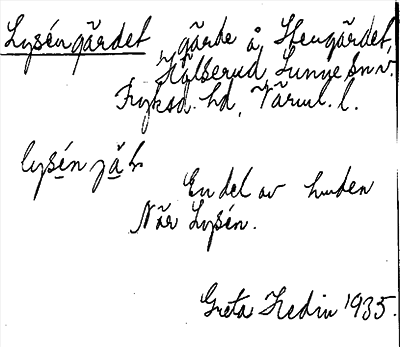 Lyséngärdet gärde å Stengärdet,
Hälserud, Sunne sn.
Fryksd. hd, Värml. l.
lysén jäɫ.
En del av
När Lysén.
Greta Hedin 1935.